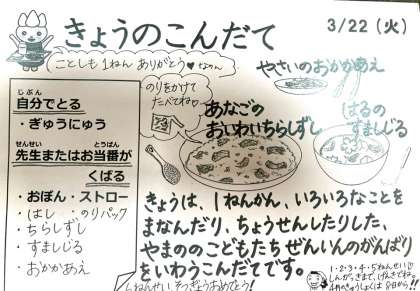 きょうのこんだて
3/22（火）
ことしも1ねん ありがとう♥
やさいのおかかあえ
のりをかけて
たべてね♡
じぶん
自分でとる
・ぎゅうにゅう
せんせい とうばん
先生またはお当番が
くばる
・おぼん・ストロー
・はし ・のりパック
・ちらしずし
・すましじる
・おかかあえ
あなごの
おいわいちらしずし
はるの
すましじる
きょうは、1ねんかん、いろいろなことを
まなんだり、ちょうせんしたりした、
やまののこどもたち ぜんいんのがんばり
をいわうこんだてです。
1・2・3・4・5ねんせい